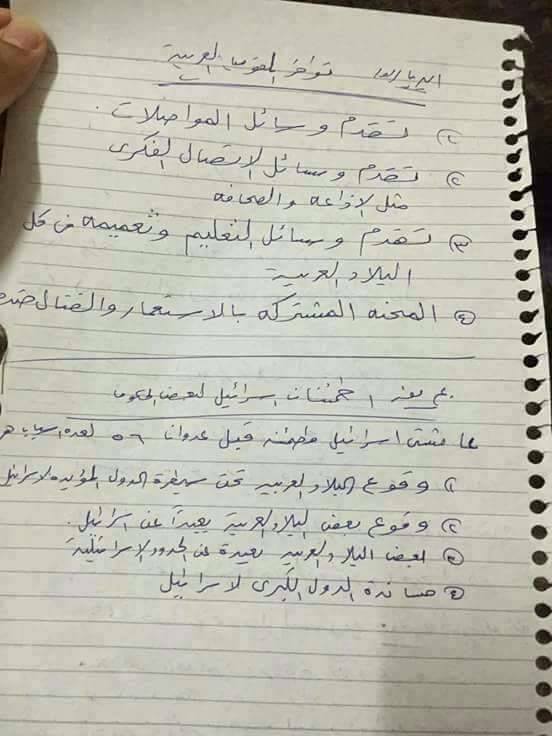 توافر المقومات العربية
١) تقدم وسائل المواصلات .
٢) تقدم وسائل الاتصال الفكرى
مثل الإذاعه والصحافه
٣) تقدم وسائل التعليم وتعميمه فى كل
البلاد العربية
٤) المحنه المشتركه بالاستعمار والنضال ضده
اسرائيل لبعض
عاشت اسرائيل مطمئنه قبل عدوان ٥٦ لعده اسباب هى
١) وقوع البلاد العربيه تحت سيطرة الدول المؤيده لاسرائيل
٢) وقوع بعض البلاد العربية بعيداً عن اسرائيل .
٣) بعض البلاد العربيه بعيدة عن الحدود الاسرائيلية
٤) مساندة الدول الكبرى لاسرائيل